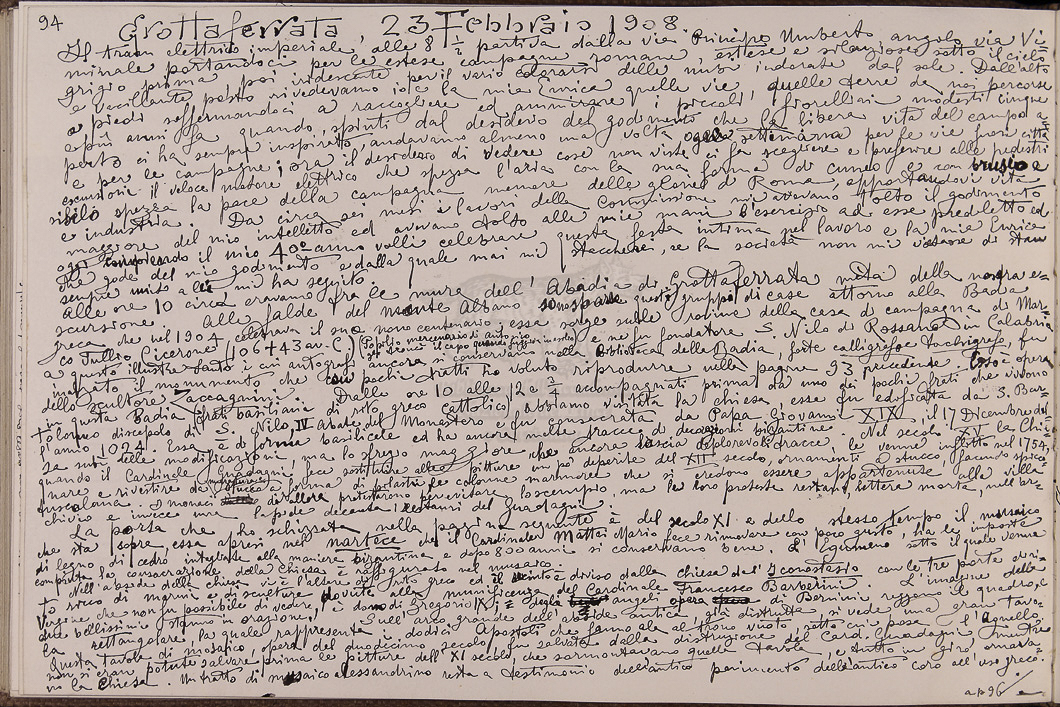 94
Grottaferrata, 23 Febbraio 1908.
Il tram elettrico imperiale, alle 8½ partiva dalla via Principe Umberto angolo via Vi-
minale portandoci per le estese campagne romane, estese e silenziose sotto il cielo
grigio prima e poi iridescente per il vario colorarsi delle nubi indorate dal sole. Dall'alto
e vacillante posto rivedevamo io e la mia Enrica quelle vie, quelle terre da noi percorse
a piedi soffermandoci a raccogliere ed ammirare i piccoli fiorellini modesti cinque
e più anni fa quando, spinti dal desiderio del godimento che la libera vita del campo a-
perto ci ha sempre inspirato, andavamo almeno una volta ogni settimana per le vie fuori città
e per le campagne; ora il desiderio di vedere cose non viste ci fa scegliere e preferire alle pedestri
escursioni il veloce motore elettrico che spezza l'aria con la sua forma di cuneo e con brusio e
sibilo spezza la pace della campagna memore delle glorie di Roma, apportandovi vita
e industria. Da circa sei mesi i lavori della Commissione mi avevano tolto il godimento
maggiore del mio intelletto ed avevano tolto alle mie mani l'esercizio ad esse prediletto ed
oggi compiendo il mio 40º anno volli celebrare questa festa intima nel lavoro e la mia Enrica
che gode del mio godimento e dalla quale mai mi staccherei, se la società non mi di stare
sempre unito a lei mi ha seguito.
Alle ore 10 circa eravamo fra le mura dell'Abadia di Grottaferrata meta della nostra e-
scursione. Alle falde del monte Albano sono sparse questi gruppi di case attorno alla Badia
greca che nel 1904 celebrava il suo nono centenario; essa sorge sulle rovine della casa di campagna di Mar-
co Tullio Cicerone (106+43 av. C.) e ne fu fondatore S. Nilo di Rossano in Calabria
a questo illustre Santo i cui autografi ancora si conservano nella Biblioteca della Badia, forte calligrafo e tachigrafo, fu
inalzato il monumento che con pochi tratti ho voluto riprodurre nella pagina 93 precedente. Esso è opera
dello Scultore Zaccagnini. Dalle ore 10 alle 12¼ accompagnati prima da uno dei pochi frati che vivono
in questa Badia (frati basiliani di rito greco cattolico) abbiamo visitata la chiesa, essa fu edificata da S. Bar-
tolomeo discepolo di S. Nilo, IV Abate del Monastero e fu consacrata da Papa Giovanni XIX, il 17 Dicembre del-
l'anno 1024. Essa è di forma basilicale ed ha ancora nelle tracce di decorazioni bizantine. Nel secolo XV la Chie-
sa subì delle modificazioni, ma lo sfregio maggiore che ancora lascia deplorevoli tracce, le venne inflitto nel 1754,
quando il Cardinale Guadagni, fece sostituire alle pitture un po' deperite del XII secolo, ornamenti a stucco, facendo spica-
nare e rivestire da stucco a forma di pilastri le colonne marmoree che si credono essere appartenute alla villa
tusculana. I monaci d'allora protestarono per evitare lo scempio, ma le loro proteste restano lettera morta, nell'ar-
chivio e invece una lapide decanta i restauri del Guadagni.
La porta che ho schizzata nella pagina seguente è del secolo XI e dello stesso tempo il musaico
che sta sopra, essa apresi nel nartece che il Cardinale Mattei Mario fece rinnovare con poco gusto, ha le imposte
di legno di cedro integliate alla maniera bizantina e dopo 800 anni si conservano bene. L'Egumeno sotto il quale venne
compiuta la consacrazione della Chiesa è raffigurato nel musaico.
Nell'abside della chiesa vi è l'altare di rito greco ed il è diviso dalla chiesa dall'Iconostasio con le tre porte ori-
to ricco di marmi e di sculture dovute alla munificenza del Cardinale Francesco Barberini. L'imagine della
Vergine che non fu possibile di vedere, è dono di Gregorio IX; degli angeli opera di Bernini reggono il quadro, e
due bellissimi stanno in orazione. Sull'arco grande dell'abside antica, già distrutta, si vede una gran tavo-
la rettangolare, la quale rappresenta i dodici Apostoli che fanno ala al trono vuoto, sotto cui posa l'Agnello.
Questa tavola di mosaico, opera del duodecimo secolo, fu salvata dalla distruzione del Card. Guadagni mentre
non si eran potute salvare prima le pitture dell'XI secolo, che sormontavano quella tavola, e tutto in giro ornava-
no la Chiesa. Un tratto di musaico alessandrino resta a testimonio dell'antico pavimento dell'antico coro all'uso greco.
a p 96